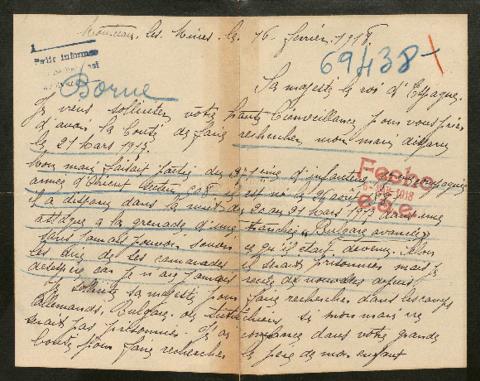 Montceau les Mines le 16 février 1918
69438
Borne
Sa majesté le roi d'Espagne.
Je viens solliciter votre haute bienveillance pour vous prier
d'avoir la bonté de faire rechercher mon mari disparu
le 21 Mars 1917.
Mon mari faisait partie du d'infanterie
armée d'Orient secteur 508 il est né le
il a disparu dans la nuit du 20 au 21 Mars 1917 dans une
attaque à la grenade d'une tranchée Bulgare avancée
sans jamais pouvoir savoir ce qu'il était devenu. Selon
les dire de ses camarades il serait prisonnier mais je
désespère car je n'ai jamais reçu de nouvelles depuis
Je sollicite sa majesté pour faire rechercher dans les camps
Allemands, Bulgare, ou Autrichiens si mon mari ne
serait pas prisonnier. J'ai confiance dans votre grande
bonté pour faire rechercher le père de mon enfant